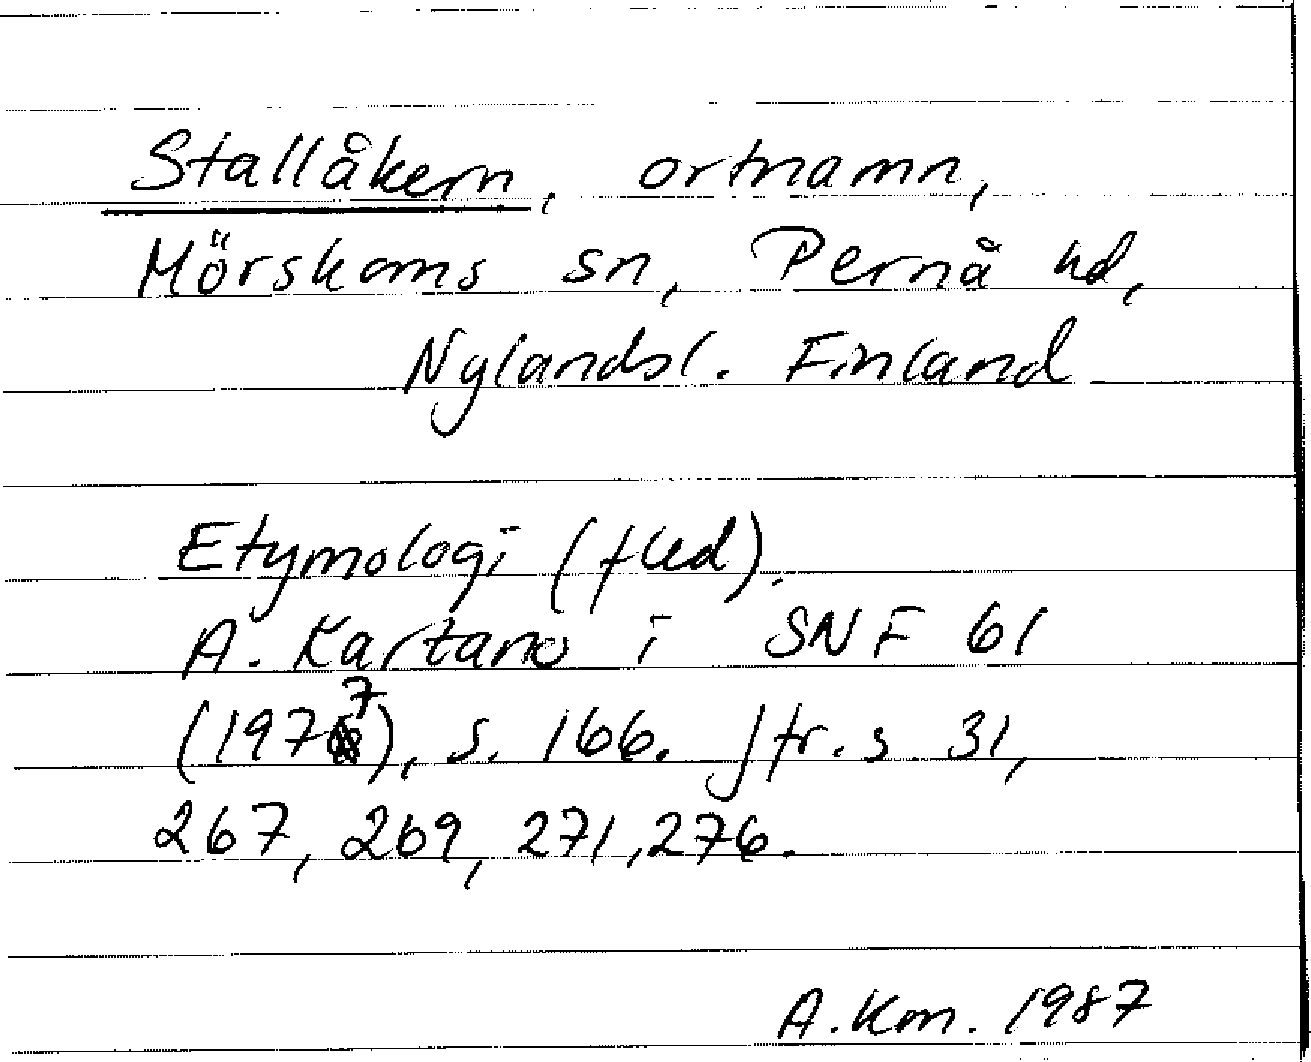 Stallåkern, ortnamn,
Mörskoms sn, Pernå hd,
Nylandsl. Finland
Etymologi (fled).
A. Kartano i SNF 61
(1977), s. 166. Jfr. s 31,
267, 269, 271, 276.
A. Km. 1987